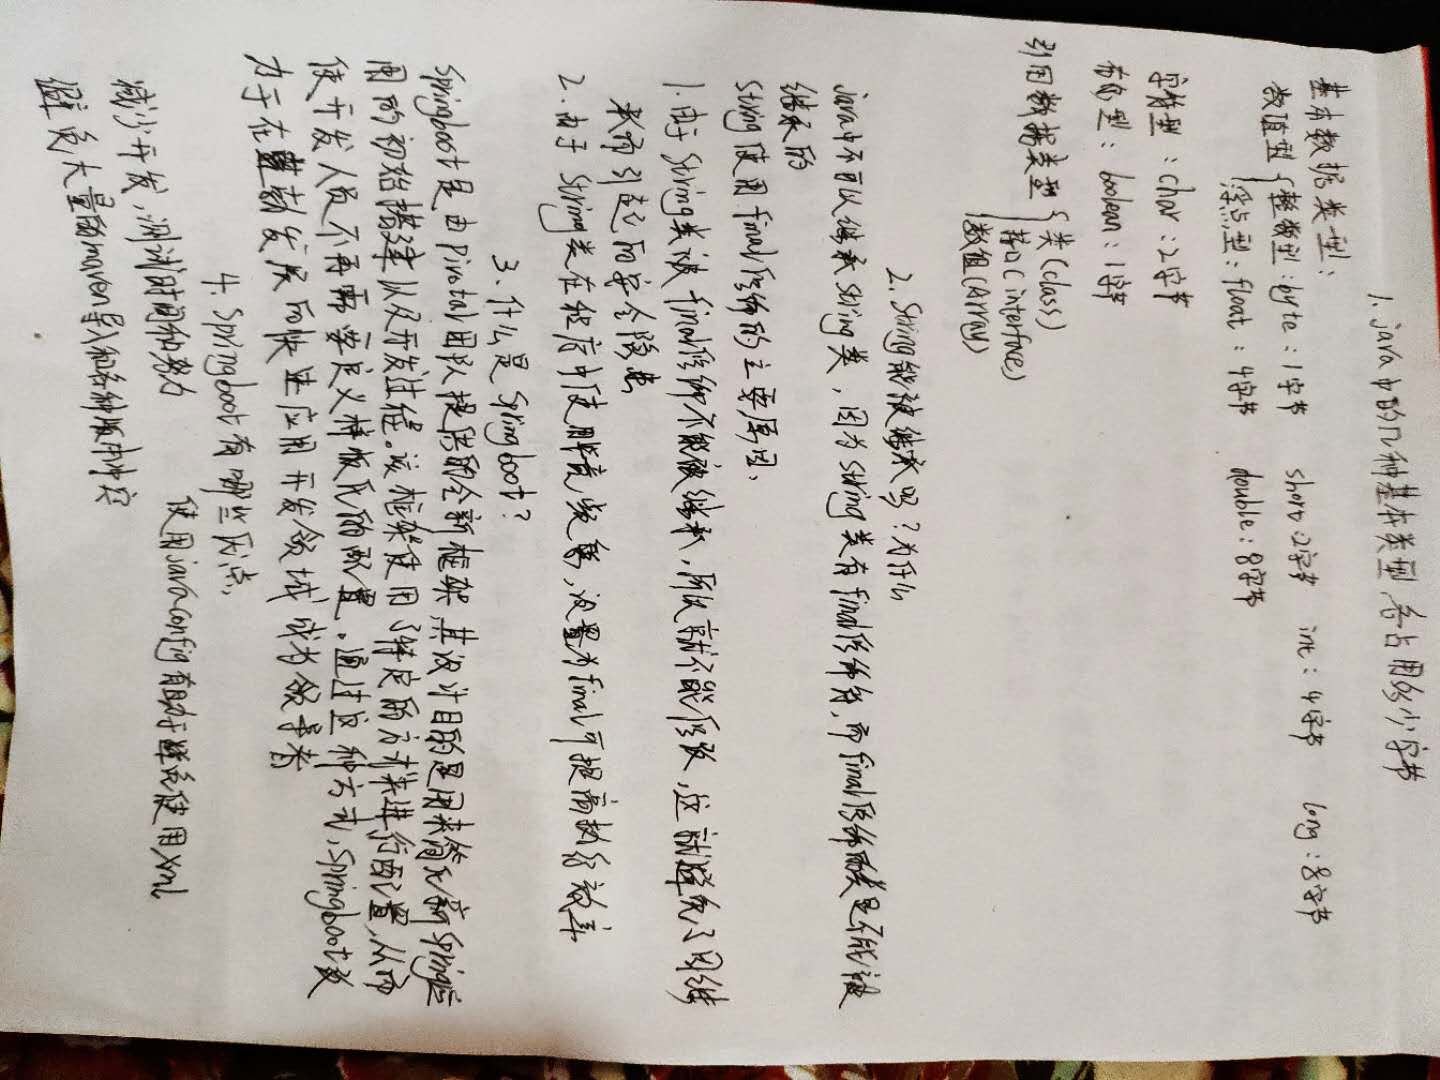 1. java中的几种基本类型,各占用多少字节
基本数据类型:
数值型{整数型:byte:1字节 short 2字节 int:4字节 long:8字节
浮点型:float:4字节 double:8字节
字符型:char:2字节
布尔型:boolean:1字节
引用数据类型{类(class)
接口(interface)
数组(Array)
2. String能被继承吗?为什么
java中不可以继承String类,因为String类有final修饰符,而final修饰的类是不能被
继承的
String使用final修饰的主要原因、
1.由于String类被final修饰不能被继承,所以就不能修改,这就避免了因继
承而引起的安全隐患
2.由于String类在程序中使用频繁,设置为final可提高执行效率
3.什么是Springboot?
Springboot是由Pivotal团队提供的全新框架 其设计目的是用来简化新Spring应
用的初始搭建以及开发过程。该框架使用了特定的方式来进行配置,从而
使开发人员不再需要定义样板化的配置。通过这种方式,Springboot致
力于在蓬勃发展的快速应用开发领域成为领导者
4. Springboot有哪些优点、
减少开发,测试时间和努力 使用javaConfig有助于避免使用xml
避免大量的maven导入和各种版本冲突